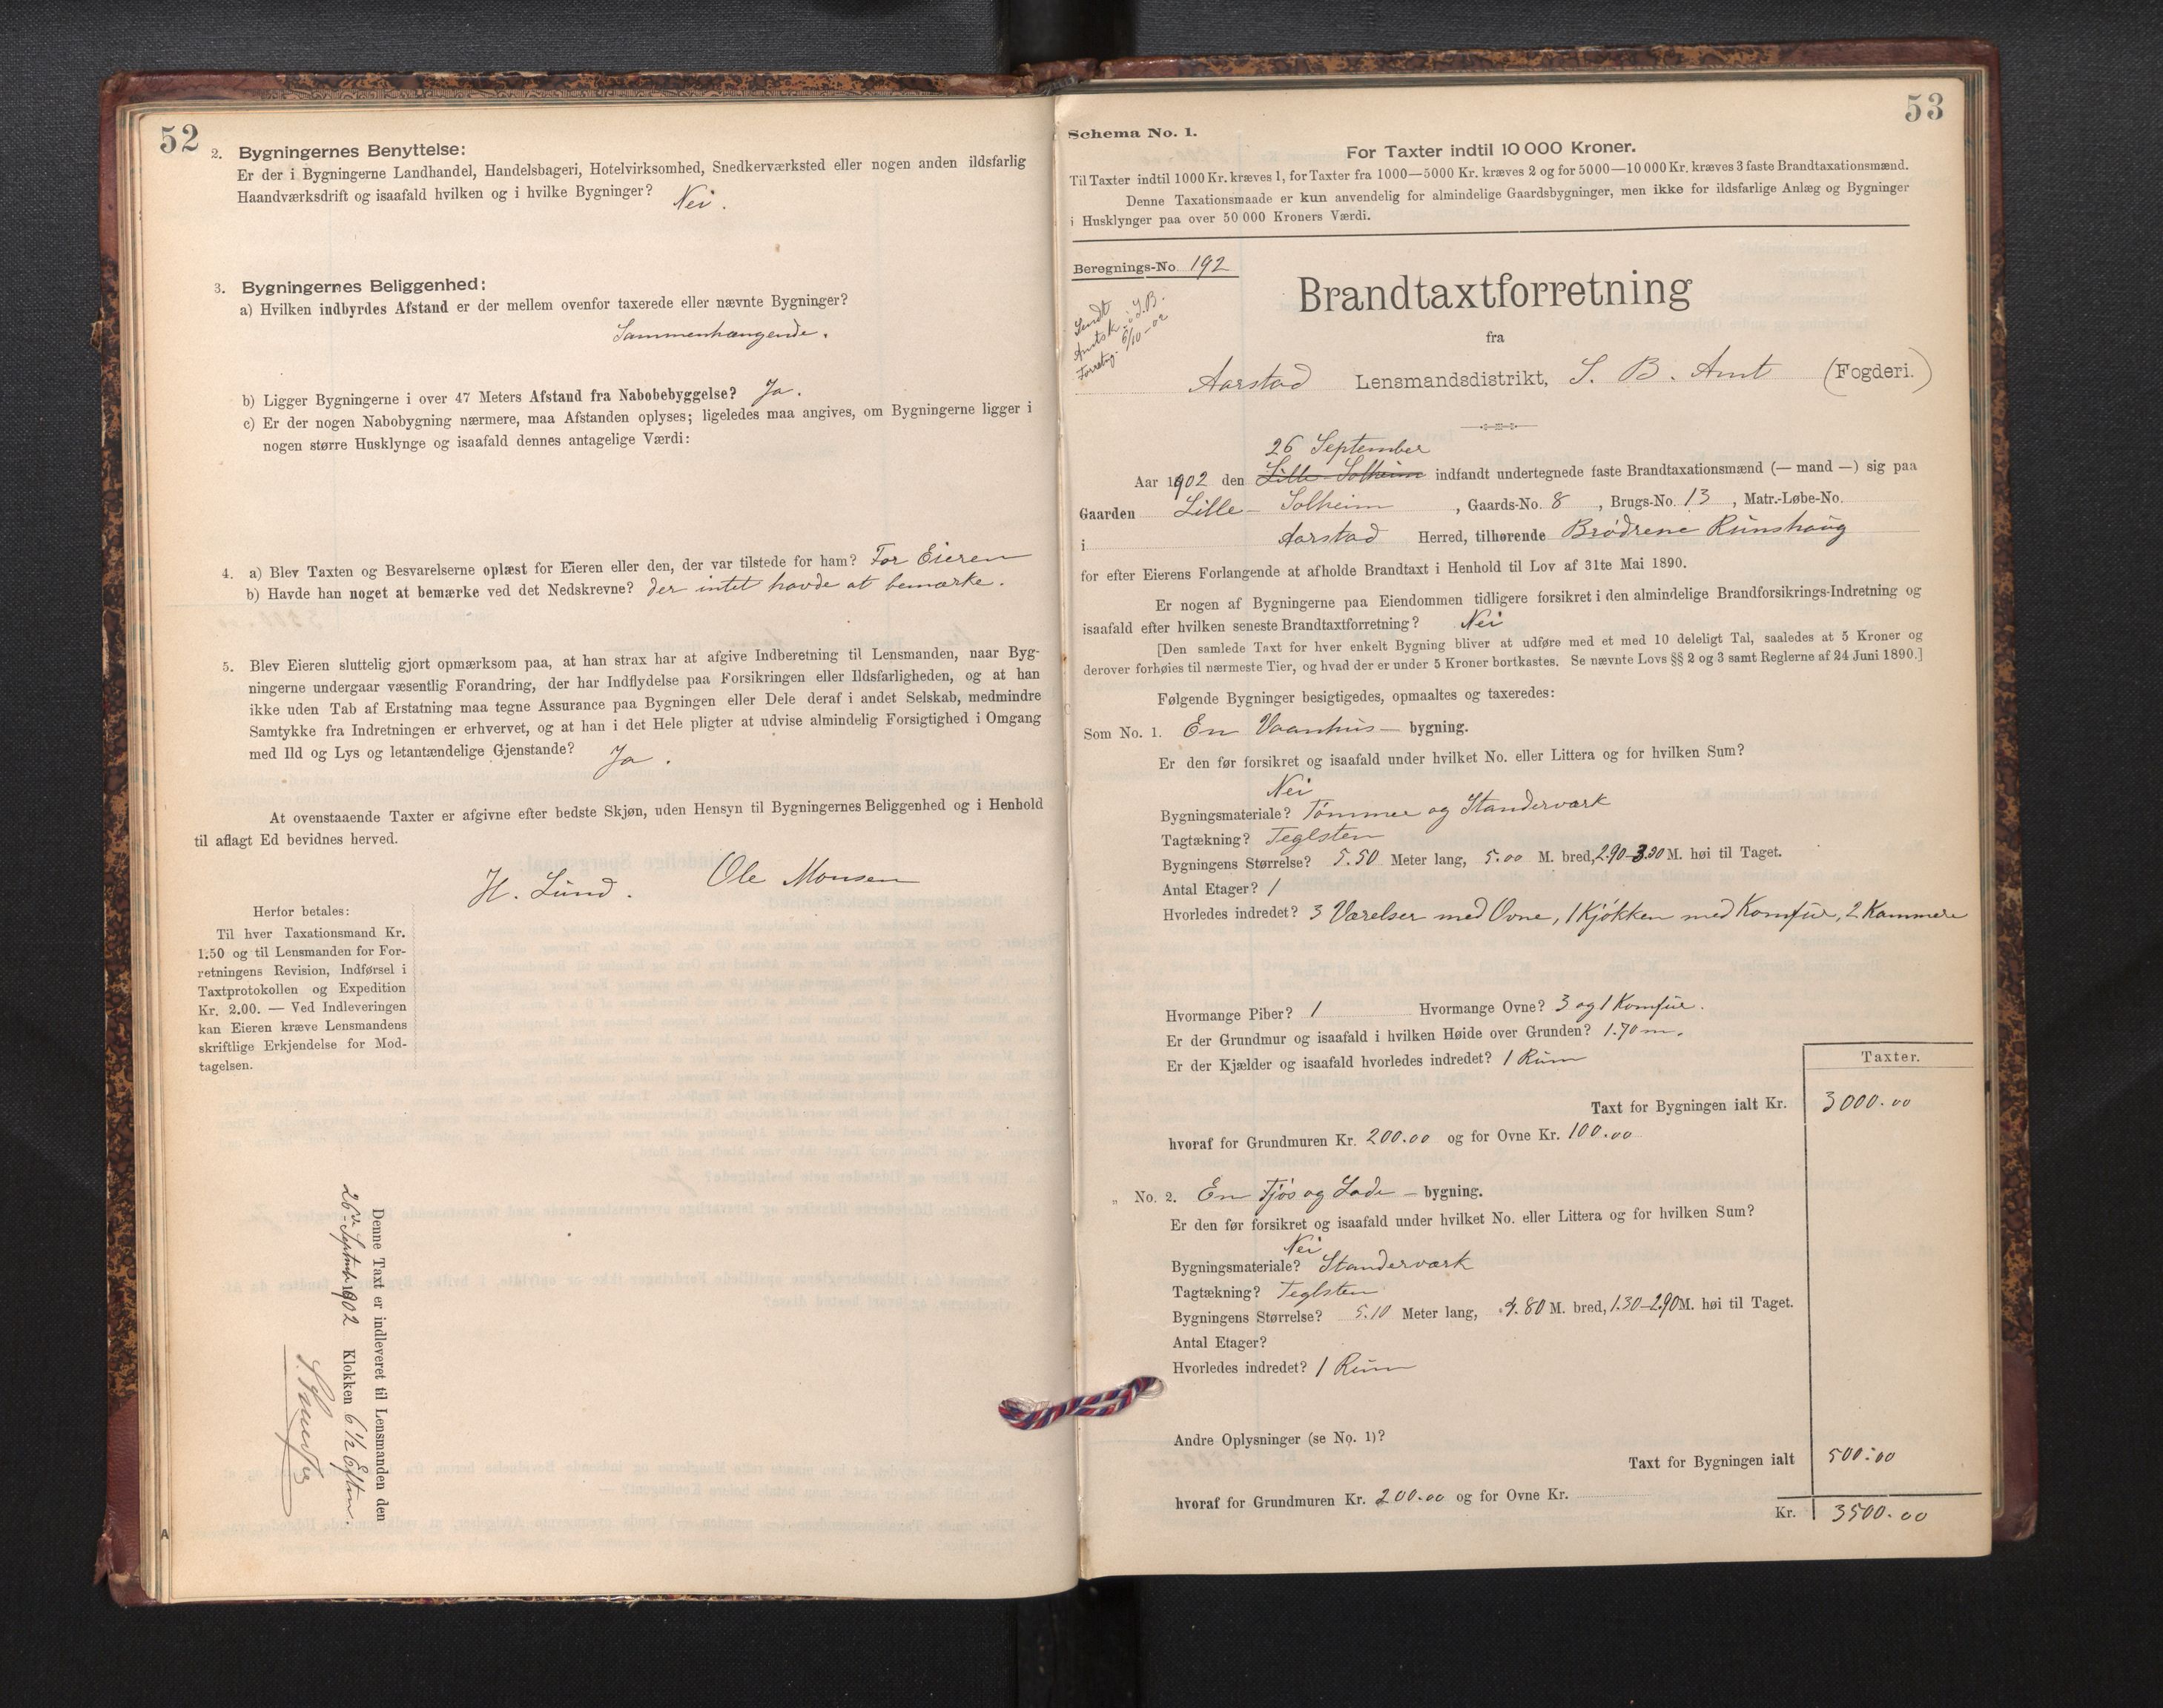 52
2. Bygningernes Benyttelse:
Er der i Bygningerne Landhandel, Handelsbageri, Hotelvirksomhed, Snedkerværksted eller nogen anden ildsfarlig
Haandværksdrift og isaafald hvilken og i hvilke Bygninger? Nei.
3. Bygningernes Beliggenhed:
a) Hvilken indbyrdes Afstand er der mellem ovenfor taxerede eller nævnte Bygninger?
Sammenhængende.
b) Ligger Bygningerne i over 47 Meters Afstand fra Nabobebyggelse? Ja.
c) Er der nogen Nabobygning nærmere, maa Afstanden oplyses; ligeledes maa angives, om Bygningerne ligger i
nogen større Husklynge og isaafald dennes antagelige Værdi:
4. a) Blev Taxten og Besvarelserne oplæst for Eieren eller den, der var tilstede for ham? For Eieren
b) Havde han noget at bemærke ved det Nedskrevne? der intet havde at bemærke.
5. Blev Eieren sluttelig gjort opmærksom paa, at han strax har at afgive Indberetning til Lensmanden, naar Byg-
ningerne undergaar væsentlig Forandring, der har Indflydelse paa Forsikringen eller Ildsfarligheden, og at han
ikke uden Tab af Erstatning maa tegne Assurance paa Bygningen eller Dele deraf i andet Selskab, medmindre
Samtykke fra Indretningen er erhvervet, og at han i det Hele pligter at udvise almindelig Forsigtighed i Omgang
med Ild og Lys og letantændelige Gjenstande? Ja.
At ovenstaaende Taxter er afgivne efter bedste Skjøn, uden Hensyn til Bygningernes Beliggenhed og i Henhold
til aflagt Ed bevidnes herved.
H. Lund. Ole Monsen
Herfor betales:
Til hver Taxationsmand Kr.
1.50 og til Lensmanden for For-
retningens Revision, Indførsel i
Taxtprotokollen og Expedition
Kr. 2.00. — Ved Indleveringen
kan Eieren kræve Lensmandens
skriftlige Erkjendelse for Mod-
tagelsen.
Denne Taxt er indleveret til Lensmanden den
26de Septemb 1902 Klokken 6 1/2 Eftm.
A
53
Schema No. 1.
For Taxter indtil 10 000 Kroner.
Til Taxter indtil 1000 Kr. kræves 1, for Taxter fra 1000—5000 Kr. kræves 2 og for 5000—10 000 Kr. kræves 3 faste Brandtaxationsmænd.
Denne Taxationsmaade er kun anvendelig for almindelige Gaardsbygninger, men ikke for ildsfarlige Anlæg og Bygninger
i Husklynger paa over 50 000 Kroners Værdi.
Beregnings-No. 192
Sendt
Amtsk. i S.B.
Forretng. 6/10-02
Brandtaxtforretning
fra
Aarstad Lensmandsdistrikt, S. B. Amt (Fogderi.)
26 September
Aar 1902 den Lille Solheim indfandt undertegnede faste Brandtaxationsmænd (— mand —) sig paa
Gaarden Lille- Solheim, Gaards-No. 8, Brugs-No. 13, Matr.-Løbe-No.
i Aarstad Herred, tilhørende Brødrene Runshaug
for efter Eierens Forlangende at afholde Brandtaxt i Henhold til Lov af 31te Mai 1890.
Er nogen af Bygningerne paa Eiendommen tidligere forsikret i den almindelige Brandforsikrings-Indretning og
isaafald efter hvilken seneste Brandtaxtforretning? Nei
[Den samlede Taxt for hver enkelt Bygning bliver at udføre med et med 10 deleligt Tal, saaledes at 5 Kroner og
derover forhøies til nærmeste Tier, og hvad der er under 5 Kroner bortkastes. Se nævnte Lovs §§ 2 og 3 samt Reglerne af 24 Juni 1890.]
Følgende Bygninger besigtigedes, opmaaltes og taxeredes:
Som No. 1. En Vaanhus — bygning.
Er den før forsikret og isaafald under hvilket No. eller Littera og for hvilken Sum?
Nei
Bygningsmateriale? Tømmer og Standerværk
Tagtækning? Teglsten
Bygningens Størrelse? 5.50 Meter lang, 5.00 M. bred, 2.90-3.30 M. høi til Taget.
Antal Etager? 1
Hvorledes indredet? 3 Værelser med Ovne, 1 Kjøkken med Komfur, 2 Kammere
Hvormange Piber? 1 Hvormange Ovne? 3 og 1 Komfur.
Er der Grundmur og isaafald i hvilken Høide over Grunden? 1.70 m.
Er der Kjælder og isaafald hvorledes indredet? 1 Rum
Taxter.
Taxt for Bygningen ialt Kr. 3000.00
hvoraf for Grundmuren Kr. 200.00 og for Ovne Kr. 100.00
„ No. 2. En Fjøs og Lade — bygning.
Er den før forsikret og isaafald under hvilket No. eller Littera og for hvilken Sum?
Nei
Bygningsmateriale? Standerværk
Tagtækning? Teglsten
Bygningens Størrelse? 5.10 Meter lang, 4.80 M. bred, 1.30-2.90 M. høi til Taget.
Antal Etager?
Hvorledes indredet? 1 Rum
Andre Oplysninger (se No. 1)?
Taxt for Bygningen ialt 500.00
hvoraf for Grundmuren Kr. 200.00 og for Ovne Kr.
Kr. 3500.00